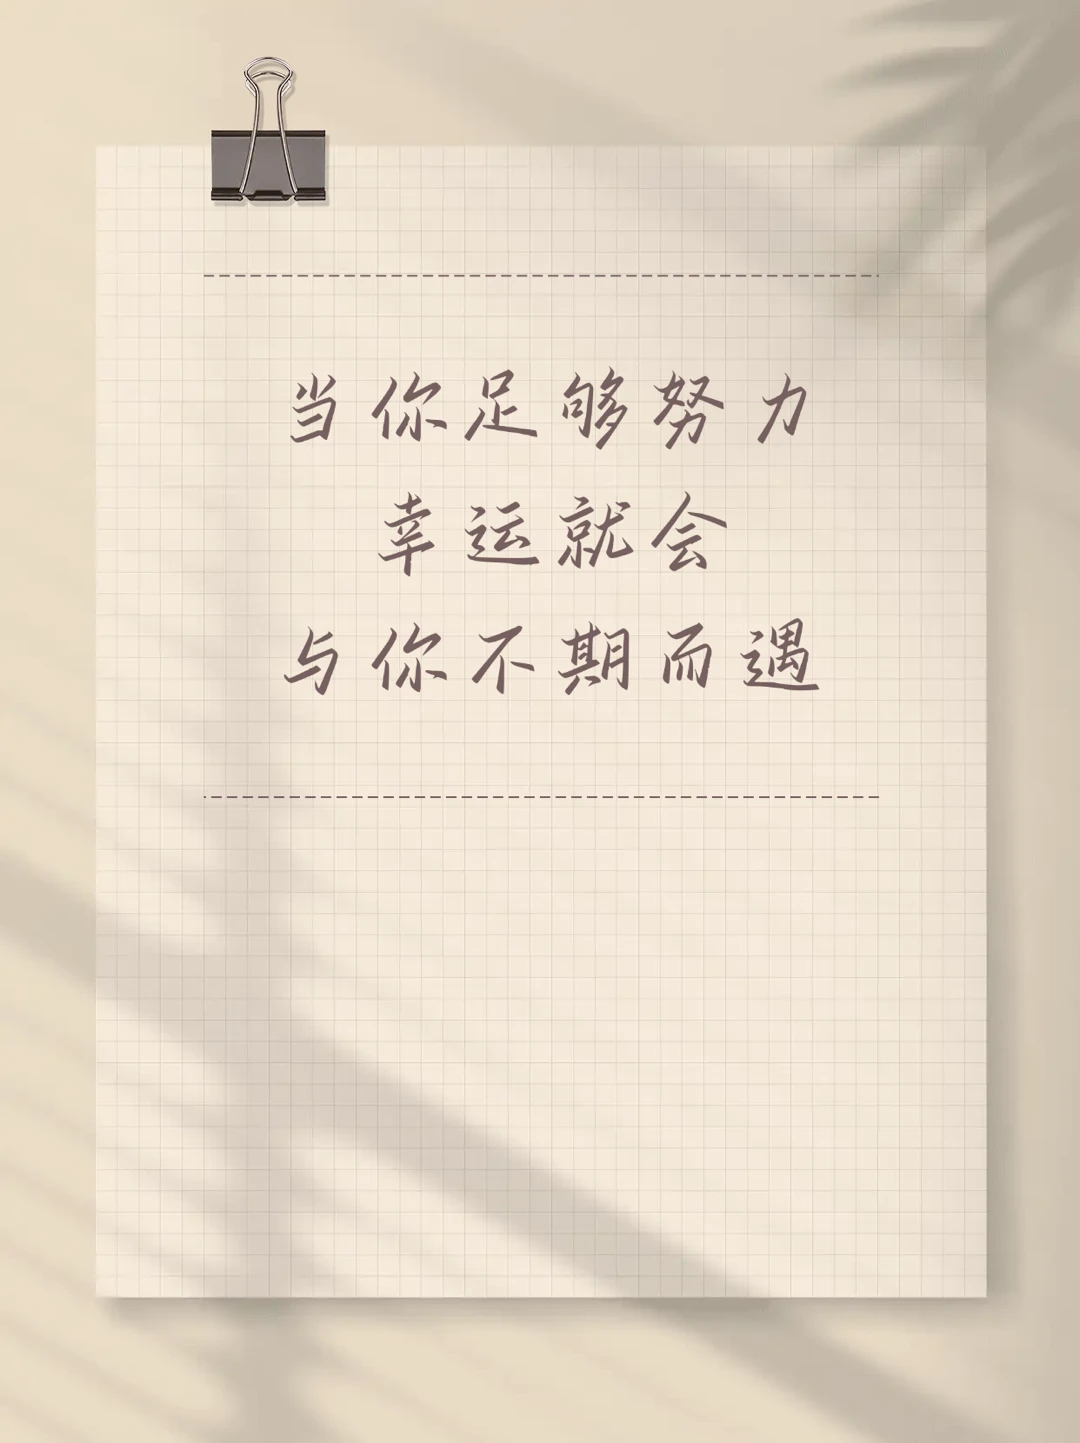 当你足够努力
幸运就会
与你不期而遇